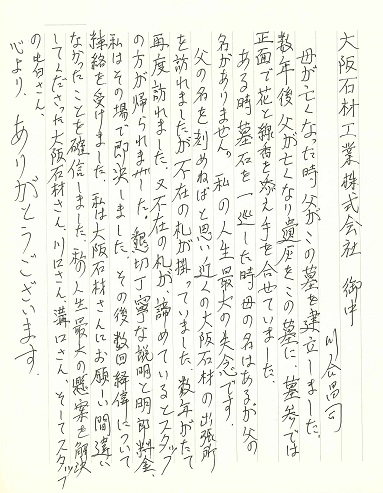 大阪石材工業株式会社 御中
川合昌司
母が亡くなった時父がこの墓を建立しました。
数年後父が亡くなり遺灰をこの墓に、墓参では
正面で花と線香を添え手を合せていました。
ある時墓石を一巡した時母の名はあるが父の
名がありません。私の人生最大の失念です。
父の名を刻めねばと思い近くの大阪石材の出張所
を訪れましたが不在の札が掛っていました。数年がたて
再度訪れました。又不在の札が、諦めているとスタッフ
の方が帰られました。懇切丁寧な説明と明朗料金、
私はその場で即決しました。その後数回経偉について
連絡を受けました。私は大阪石材さんにお願い間違い
なかったことを確信しました。私の人生最大の懸案を解決
してくださった大阪石材さん、川口さん、溝口さん、そしてスタッフ
の皆さん、
心より、ありがとうございます。